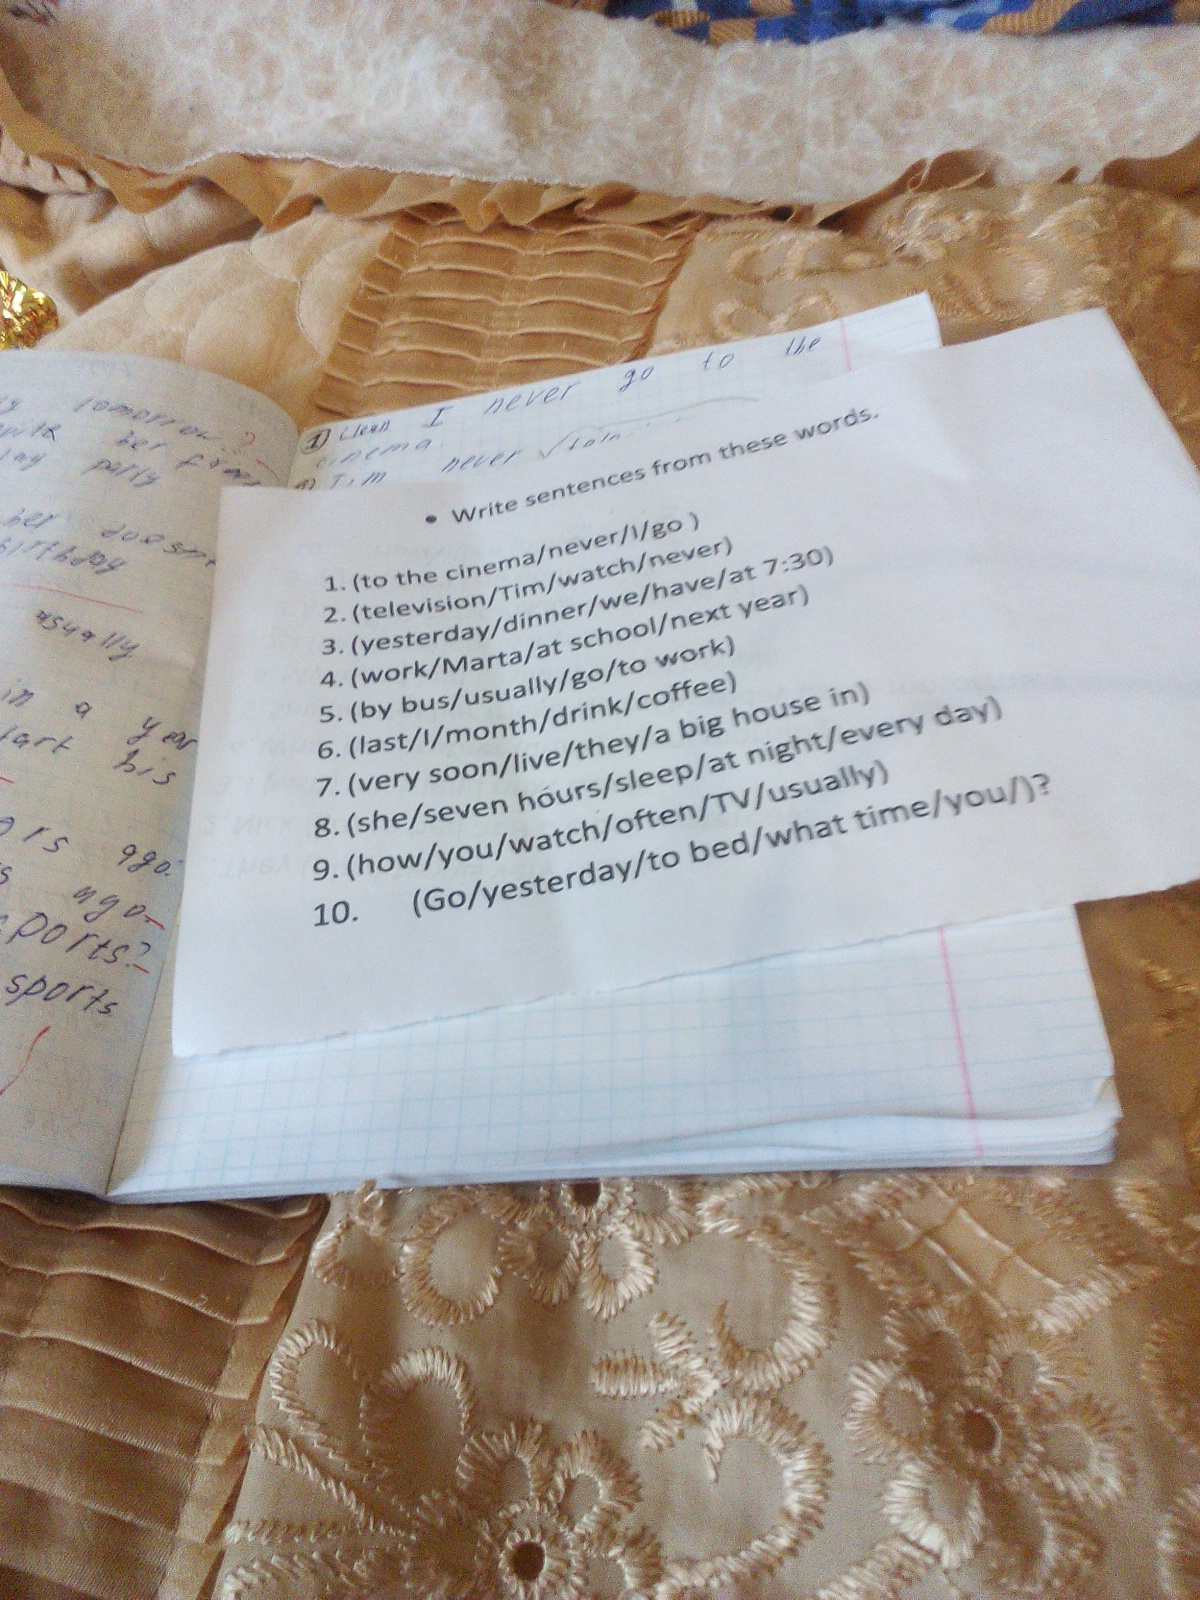 y tomorrow ?
her
day party
her doesn't
birthday
usually
in a year
tart his
ars ago.
s ago
sports?
sports
1) Clean I never go to the
cinema
2) Tim never
• Write sentences from these words.
1. (to the cinema/never/I/go )
2. (television/Tim/watch/never)
3. (yesterday/dinner/we/have/at 7:30)
4. (work/Marta/at school/next year)
5. (by bus/usually/go/to work)
6. (last/I/month/drink/coffee)
7. (very soon/live/they/a big house in)
8. (she/seven hours/sleep/at night/every day)
9. (how/you/watch/often/TV/usually)
10. (Go/yesterday/to bed/what time/you/)?